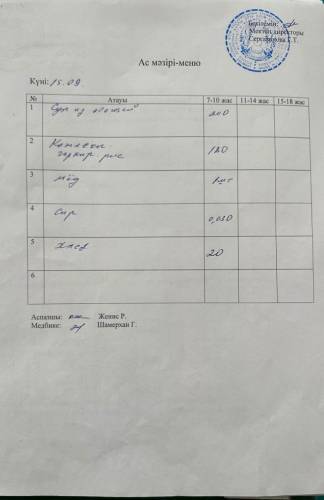 Бекітемін:
Мектеп директоры
Ас мәзірі-меню
Күні: 15.09
№ Атауы 7-10 жас 11-14 жас 15-18 жас
1 Суп из овощей 200
2 Котлеты
гарнир рис 120
3 мёд 1шт
4 Сыр 0,030
5 хлеб 20
6
Аспазшы: Женис Р.
Медбике: Шамерхан Г.